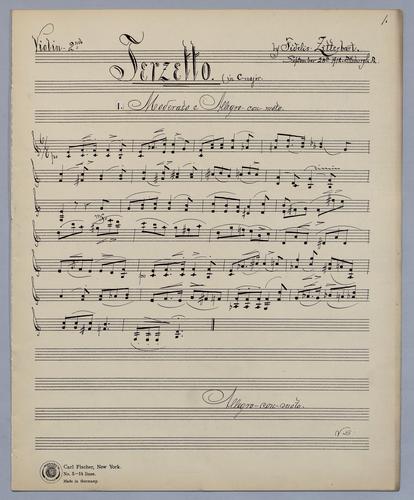 1.
Violin - 2nd
Terzetto. (in C major
by Fidelis Zitterbart.
September 28th 1912. Pittsburgh, Pa.
1. Moderato e Allegro con moto.
Allegro-con-moto.
V.S.
Carl Fischer, New York.
No. 5—14 lines.
Made in Germany.